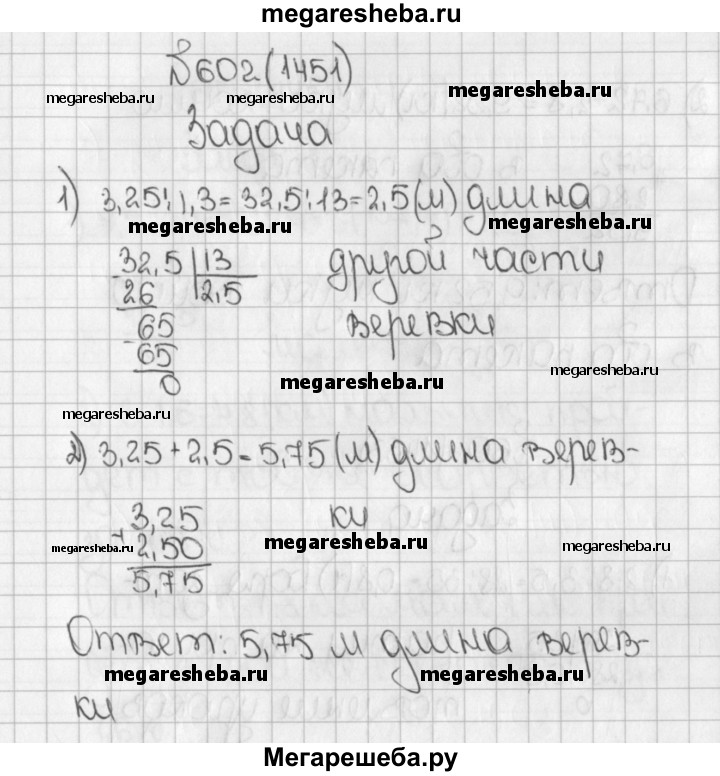 megaresheba.ru
№602(1451)
megaresheba.ru megaresheba.ru megaresheba.ru
Задача
1) 3,25:1,3=32,5:13=2,5(м) длина
megaresheba.ru megaresheba.ru
32,5 13 другой части
26 2,5
65 веревки
65
megaresheba.ru
0 megaresheba.ru
megaresheba.ru
2) 3,25+2,5=5,75(м) длина верев-
3,25 ки
+
megaresheba.ru 2,50 megaresheba.ru megaresheba.ru
5,75
Ответ: 5,75 м длина верев-
megaresheba.ru megaresheba.ru
ки
Мегарешеба.ру